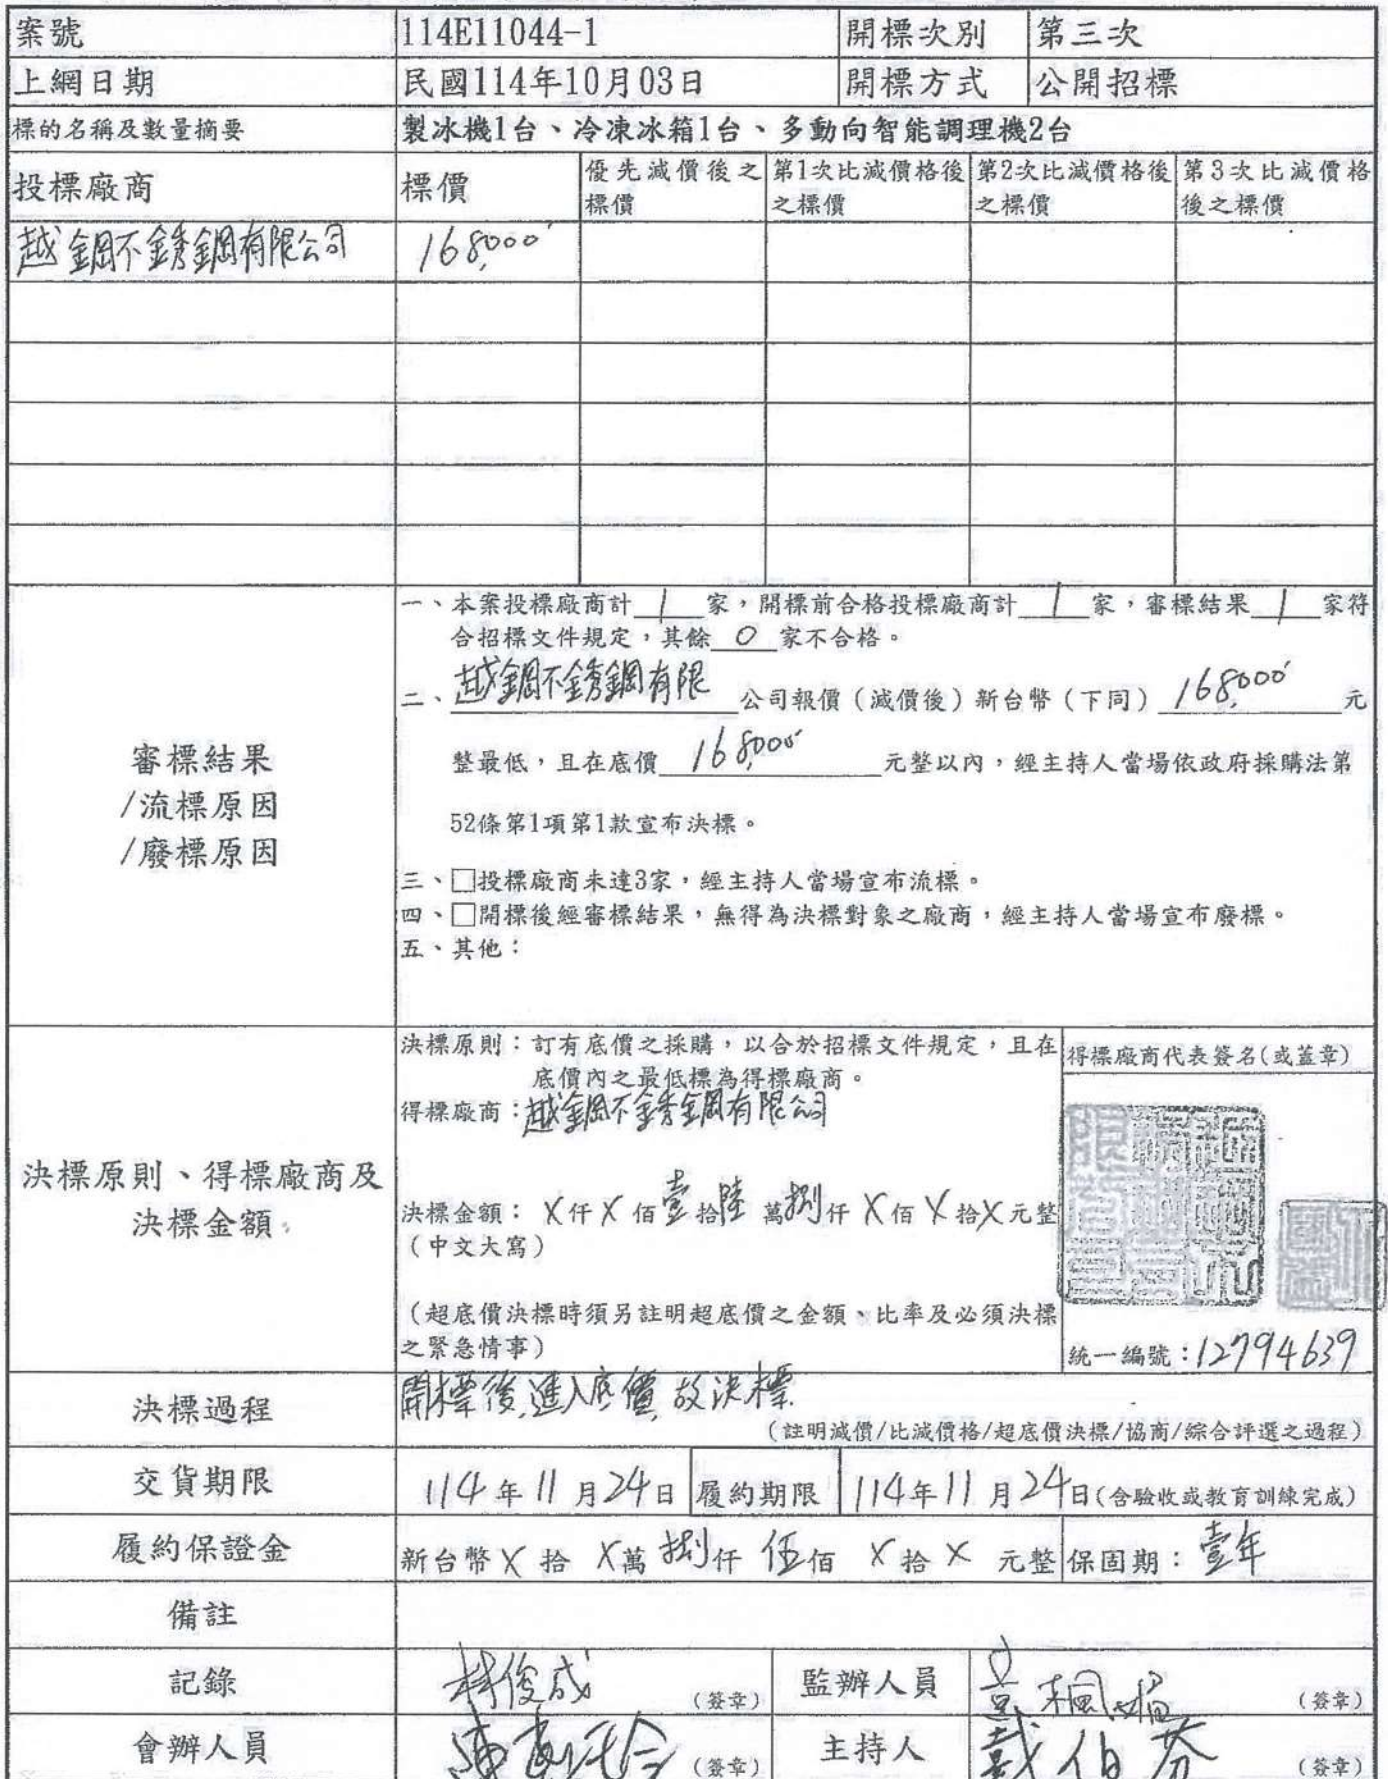 案號 114E11044-1 開標次別 第三次
上網日期 民國114年10月03日 開標方式 公開招標
標的名稱及數量摘要 製冰機1台、冷凍冰箱1台、多動向智能調理機2台
投標廠商 標價 優先減價後之標價 第1次比減價格後之標價 第2次比減價格後之標價 第3次比減價格後之標價
越鋼不銹鋼有限公司 168,000
審標結果
/流標原因
/廢標原因
一、本案投標廠商計 1 家,開標前合格投標廠商計 1 家,審標結果 1 家符
合招標文件規定,其餘 0 家不合格。
二、越鋼不銹鋼有限 公司報價(減價後)新台幣(下同) 168,000 元
整最低,且在底價 168,000 元整以內,經主持人當場依政府採購法第
52條第1項第1款宣布決標。
三、□投標廠商未達3家,經主持人當場宣布流標。
四、□開標後經審標結果,無得為決標對象之廠商,經主持人當場宣布廢標。
五、其他:
決標原則、得標廠商及
決標金額
決標原則:訂有底價之採購,以合於招標文件規定,且在
底價內之最低標為得標廠商。
得標廠商:越鋼不銹鋼有限公司
決標金額: X仟X佰壹拾陸萬捌仟X佰X拾X元整
(中文大寫)
(超底價決標時須另註明超底價之金額、比率及必須決標
之緊急情事)
得標廠商代表簽名(或蓋章)
統一編號:12794639
決標過程 開標後,進入底價,故決標.
(註明減價/比減價格/超底價決標/協商/綜合評選之過程)
交貨期限 114年11月24日 履約期限 114年11月24日(含驗收或教育訓練完成)
履約保證金 新台幣X拾X萬捌仟伍佰X拾X元整 保固期:壹年
備註
記錄 林俊成 (簽章) 監辦人員 (簽章)
會辦人員 (簽章) 主持人 戴伯芬 (簽章)